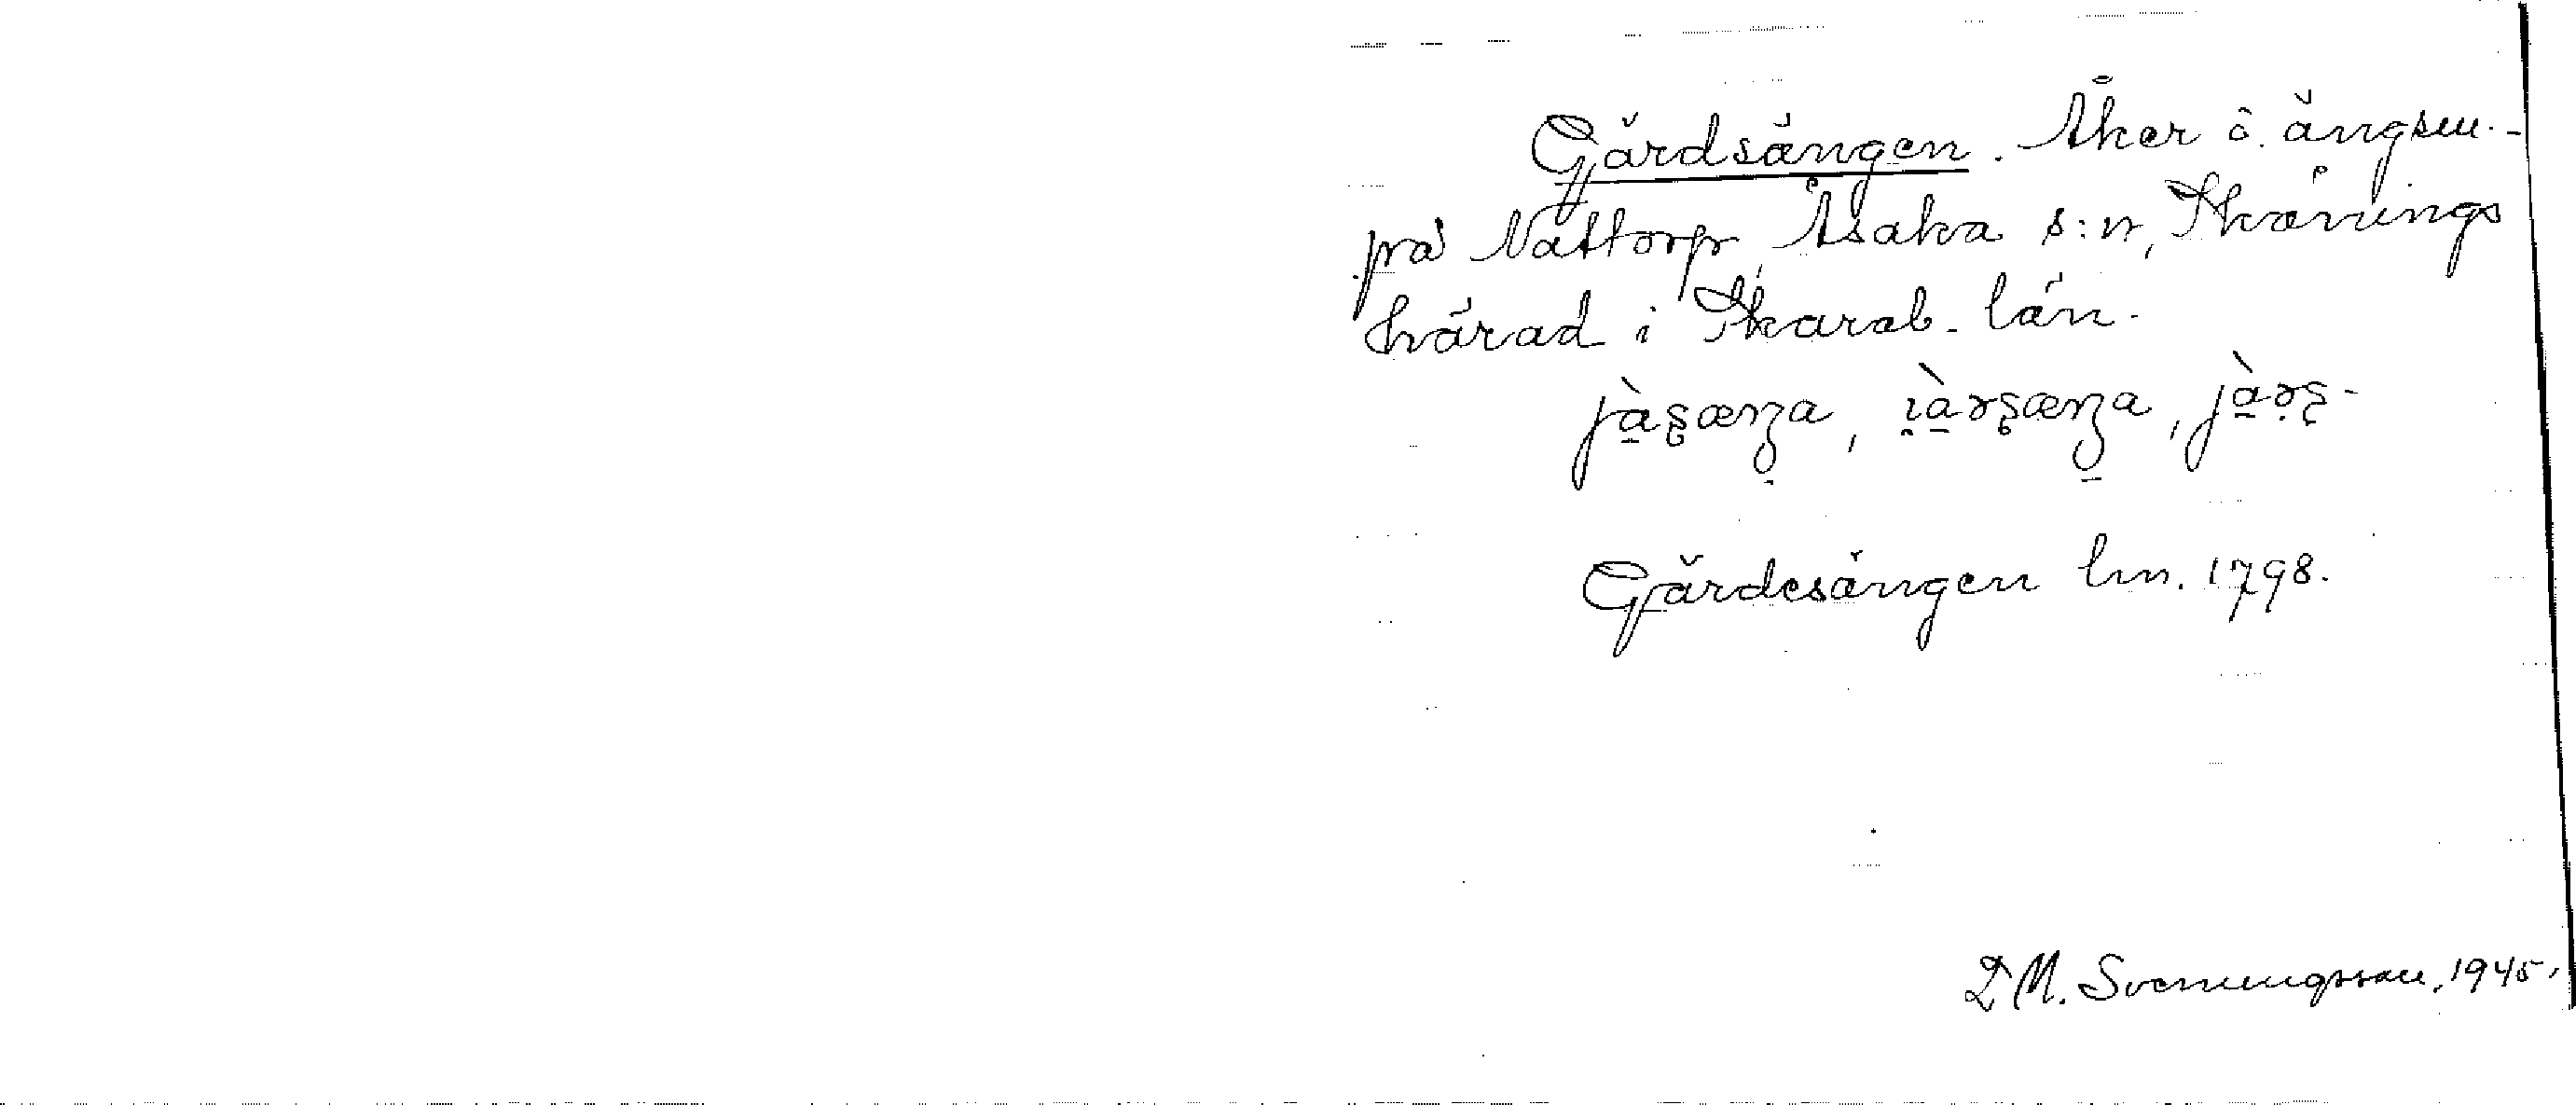 Gärdsängen. Åker o. ängsm.-
på Nattorp, Åsaka s:n, Skånings
härad i Skarab. län.
Gärdesängen lm. 1798.
D M. Svenningsson, 1945.